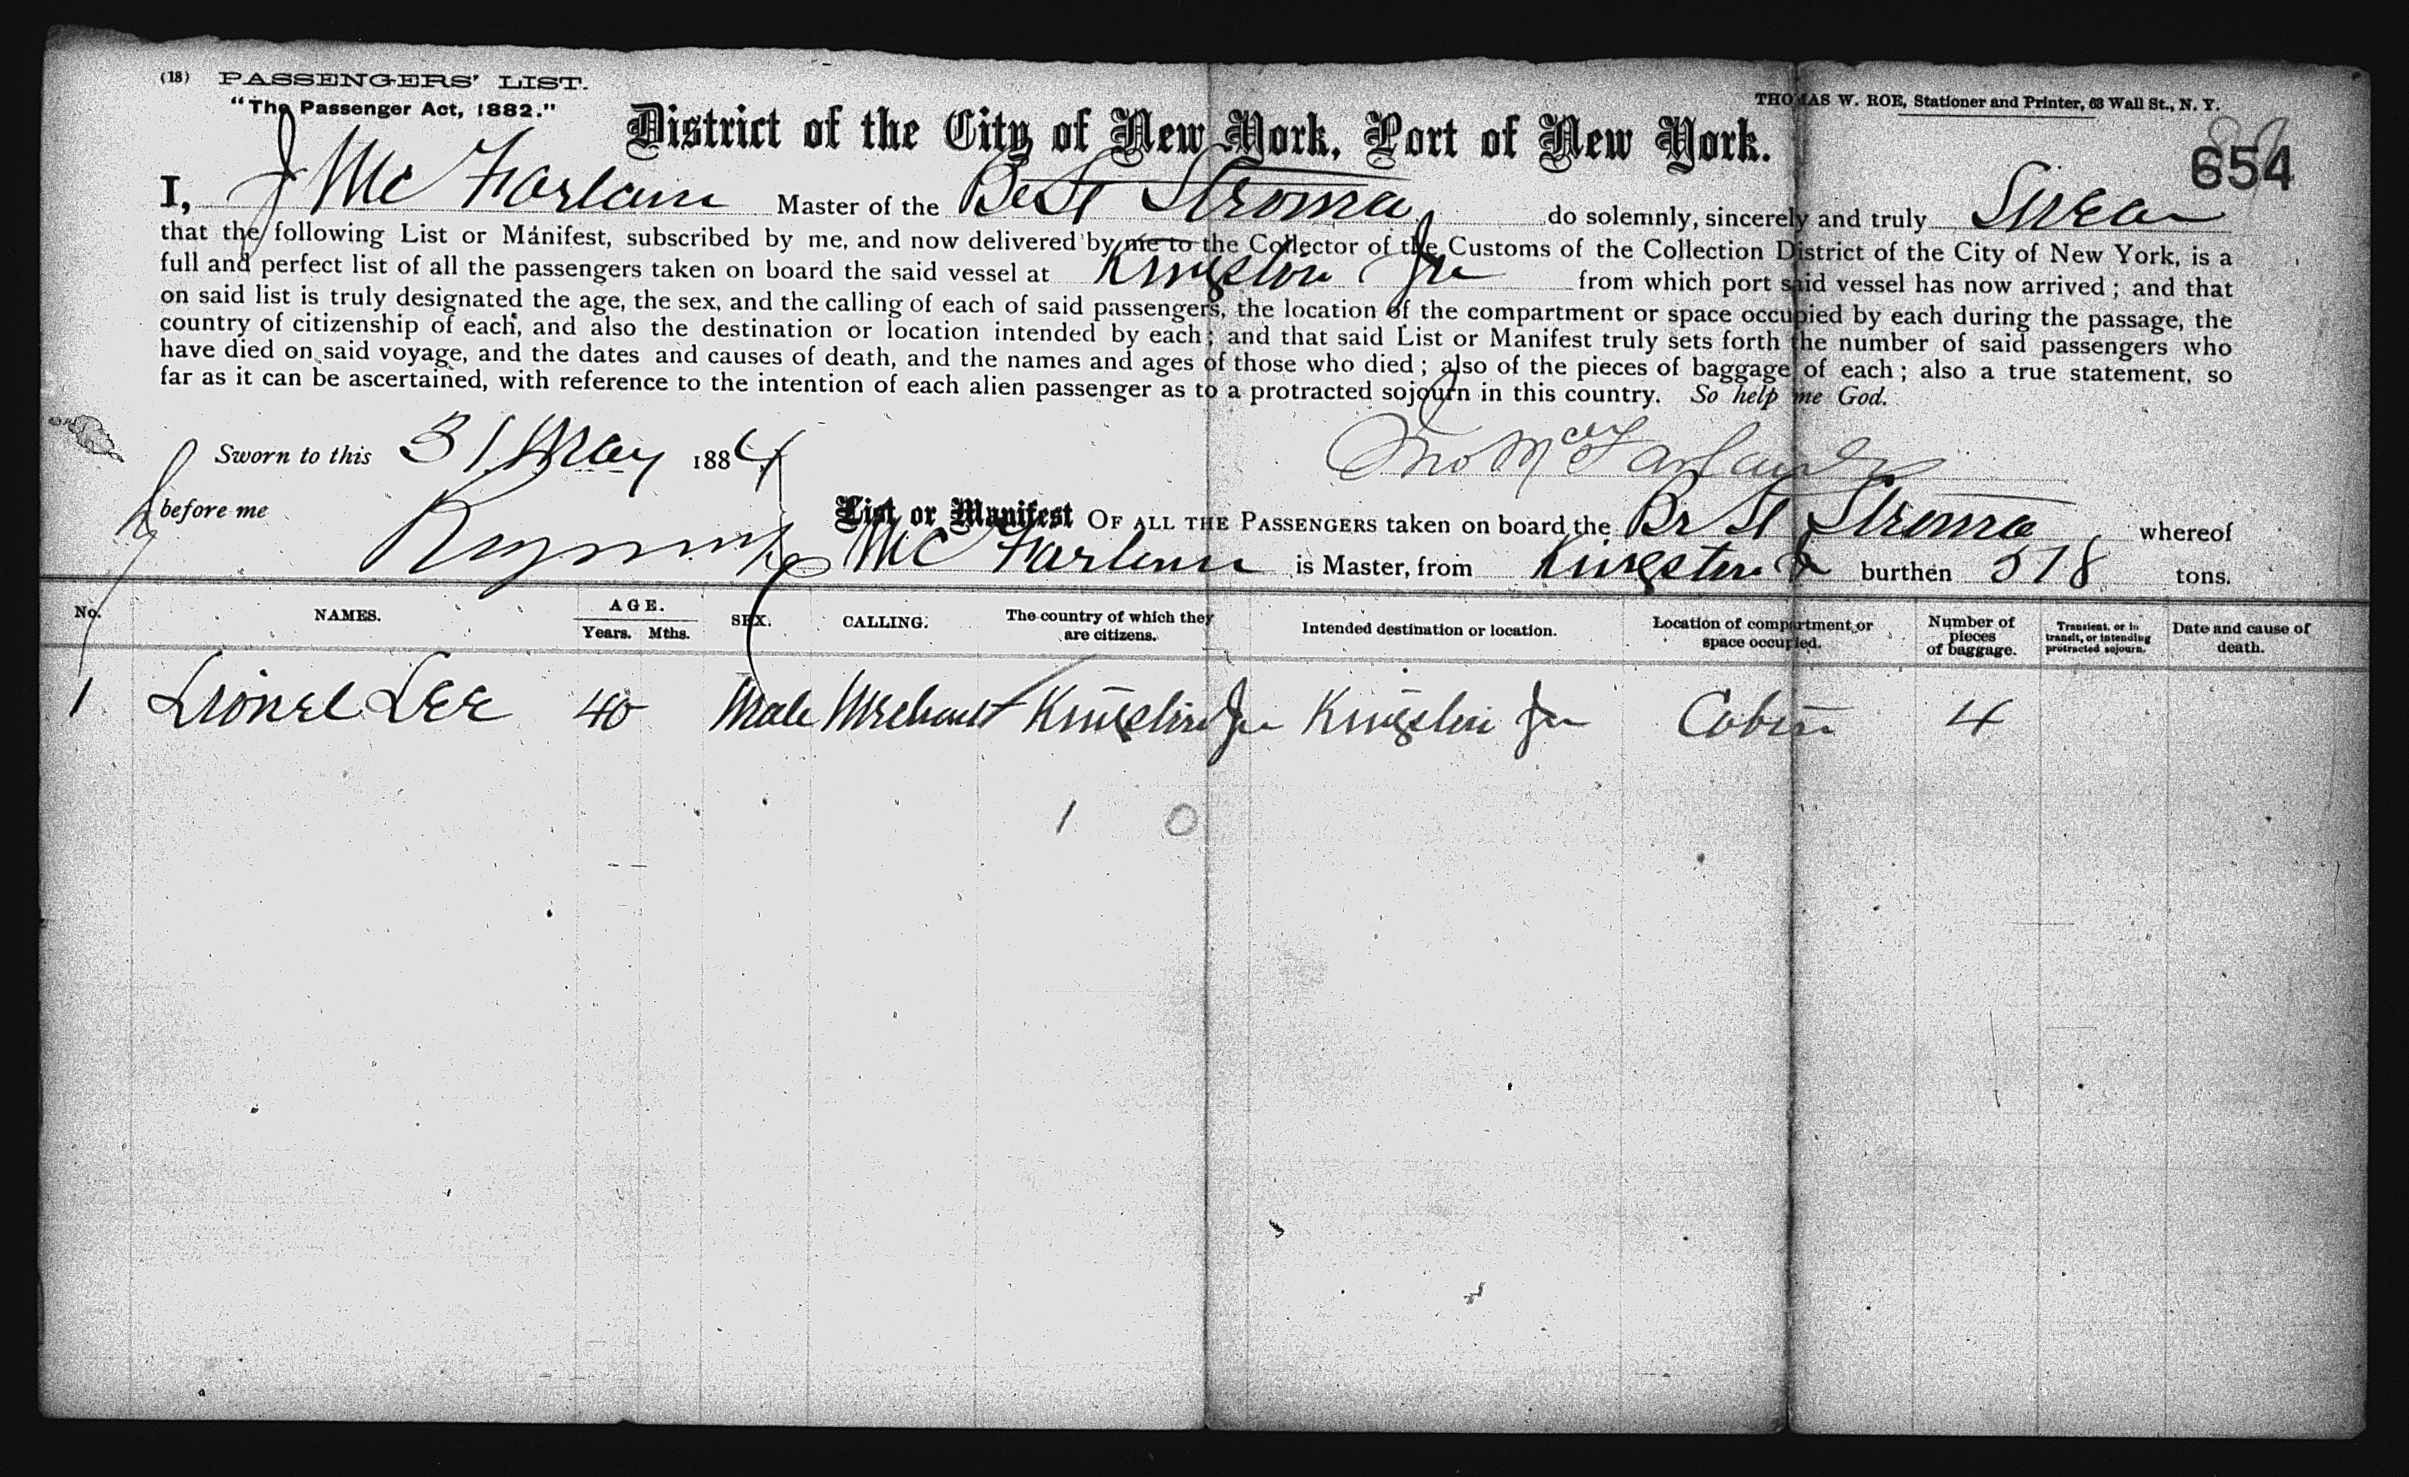 (18) PASSENGERS' LIST.
"The Passenger Act, 1882."
THOMAS W. ROE, Stationer and Printer, 63 Wall St., N. Y.
District of the City of New York, Port of New York.
654
I, J McFarlane Master of the Br St Stroma do solemnly, sincerely and truly Swear
that the following List or Manifest, subscribed by me, and now delivered by me to the Collector of the Customs of the Collection District of the City of New York, is a
full and perfect list of all the passengers taken on board the said vessel at Kingston Ja from which port said vessel has now arrived; and that
on said list is truly designated the age, the sex, and the calling of each of said passengers, the location of the compartment or space occupied by each during the passage, the
country of citizenship of each, and also the destination or location intended by each; and that said List or Manifest truly sets forth the number of said passengers who
have died on said voyage, and the dates and causes of death, and the names and ages of those who died; also of the pieces of baggage of each; also a true statement, so
far as it can be ascertained, with reference to the intention of each alien passenger as to a protracted sojourn in this country. So help me God.
Sworn to this 31 May 1884
Jno McFarlane
before me
List or Manifest OF ALL THE PASSENGERS taken on board the Br St Stroma whereof
McFarlane is Master, from Kingston Ja burthen 578 tons.
No. NAMES. AGE. Years. Mths. SEX. CALLING. The country of which they are citizens. Intended destination or location. Location of compartment or space occupied. Number of pieces of baggage. Transient, or in transit, or intending protracted sojourn. Date and cause of death.
1 Lionel Lee 40 Male Merchant Kingston Ja Kingston Ja Cabin 4
1 0